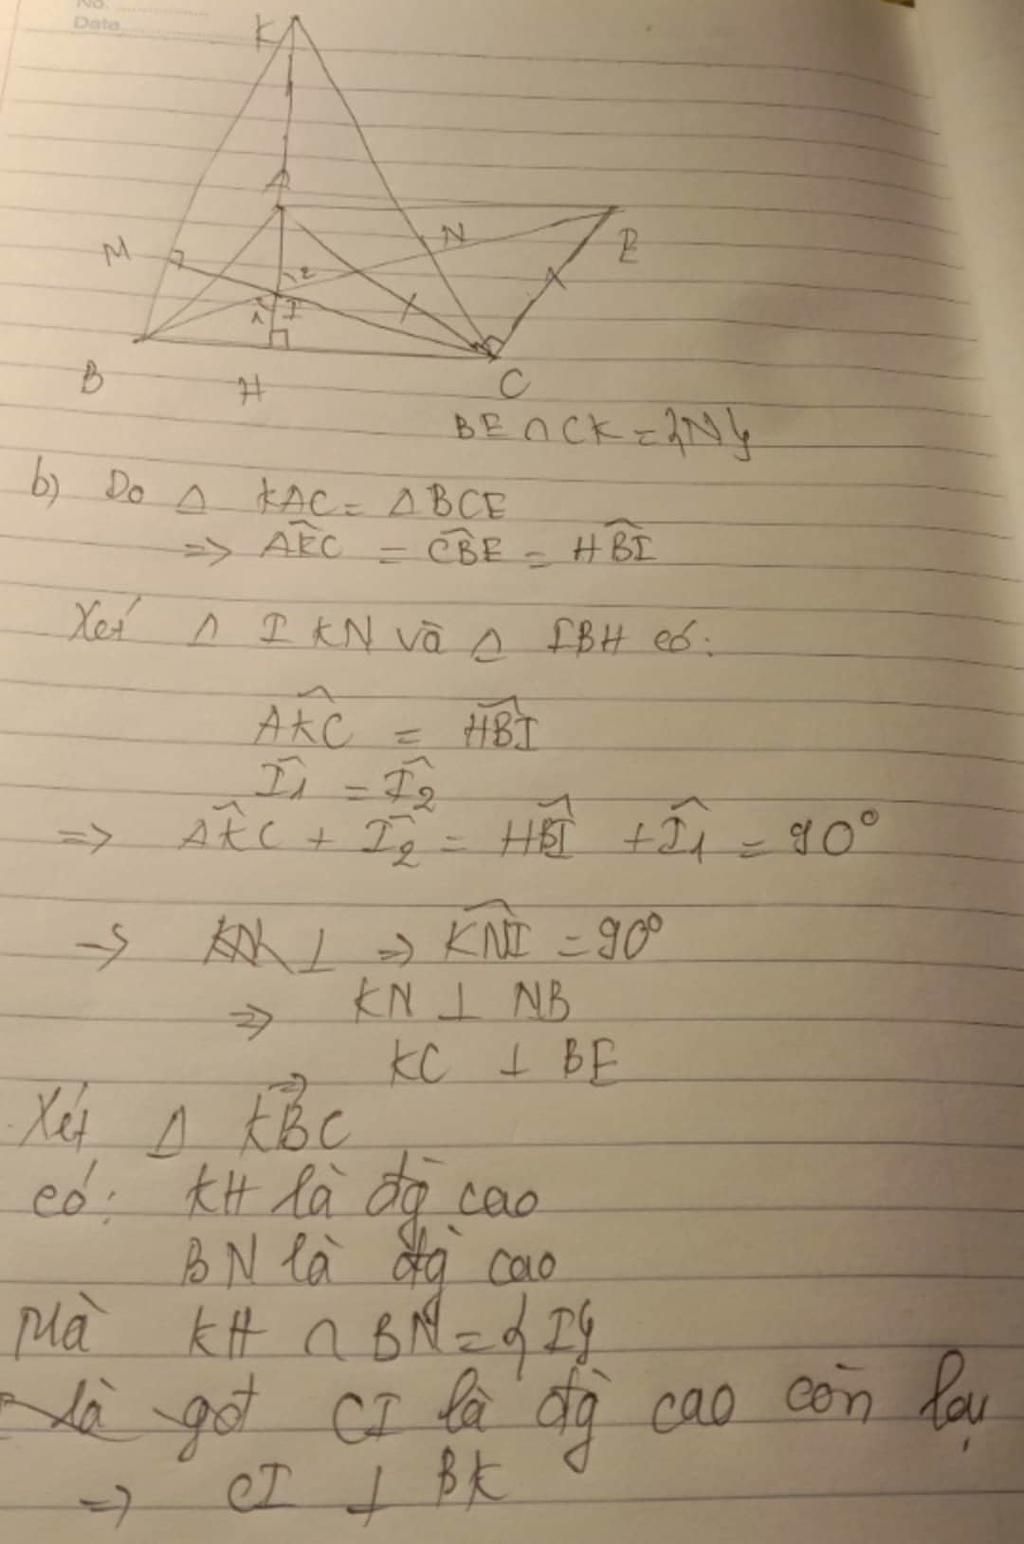 No.
Date
K
A
M
N
E
2
1
I
B
H
C
BE ∩ CK = {N}
b) Do Δ KAC = Δ BCE
=> AKC = CBE = HBI
Xét Δ IKN và Δ IBH có:
AKC = HBI
I1 = I2
=> AKC + I2 = HBI + I1 = 90°
-> ⊥ => KNI = 90°
=> KN ⊥ NB
=> KC ⊥ BE
Xét Δ KBC
có: KH là đg cao
BN là đg cao
Mà KH ∩ BN = {I}
CI là đg cao còn lại
=> CI ⊥ BK